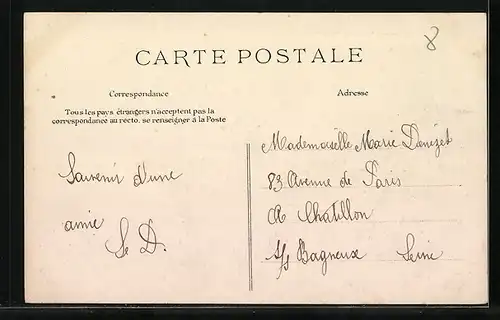 8
CARTE POSTALE
Correspondance
Adresse
Tous les pays étrangers n'acceptent pas la
correspondance au recto, se renseigner à la Poste
Souvenir d'une
amie
Le D.
Mademoiselle Marie Denizet
83 Avenue de Paris
à Chatillon
s/s Bagneux Seine